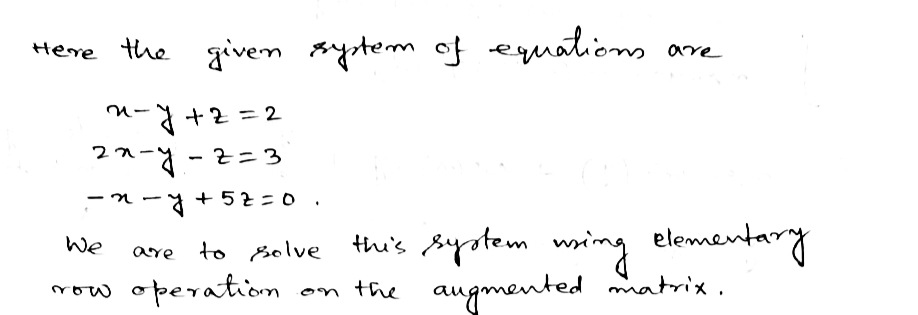 Here the given system of equations are
x - y + z = 2
2x - y - z = 3
- x - y + 5z = 0 .
We are to solve this system using elementary
row operation on the augmented matrix.